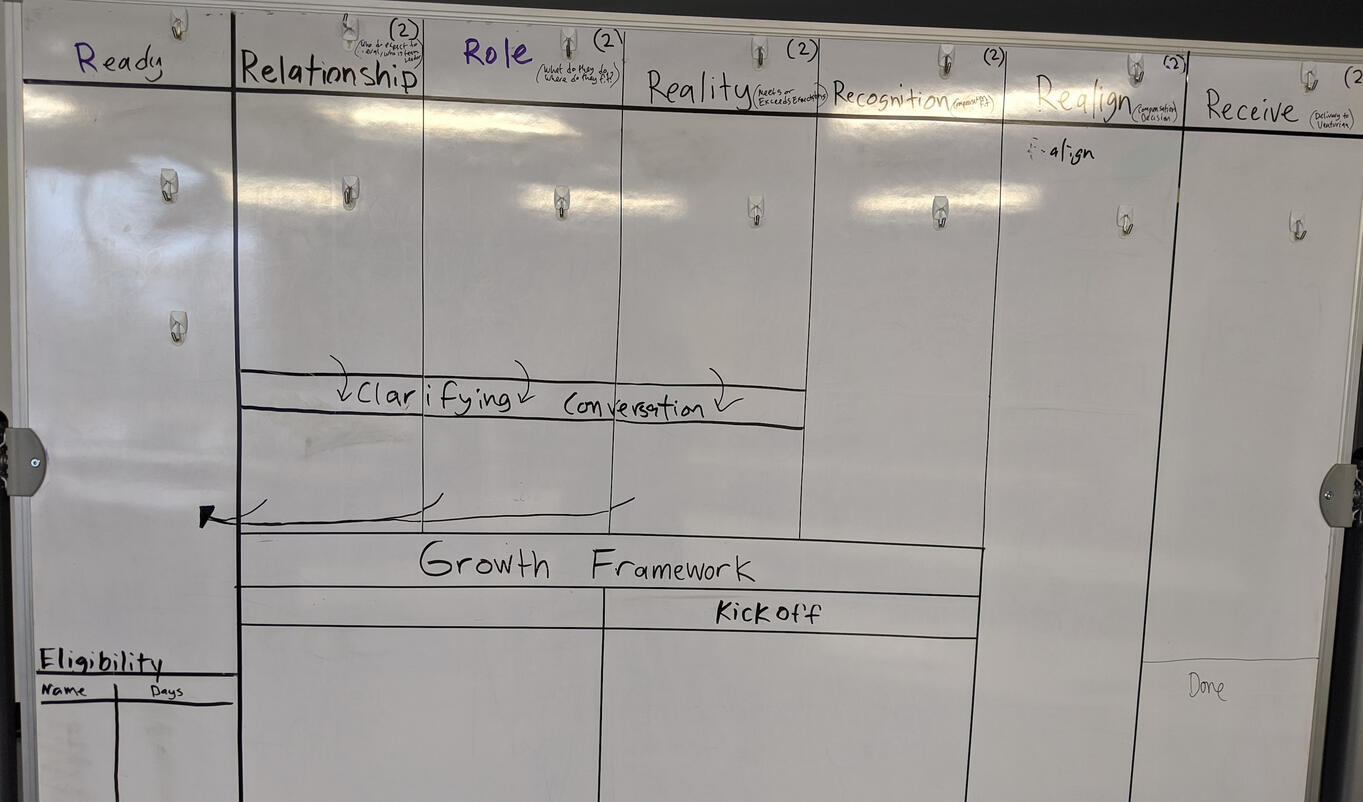 Ready
(2)
Relationship
Role
(2)
(What do they do,
Where do they fit?)
(2)
Reality
(Meets or
Exceeds Expectations)
(2)
Recognition
(2)
Realign
(Compensation
Decision)
(2
Receive
(Delivery to
Venturian)
align
Clarifying Conversation
Growth Framework
Kick off
Eligibility
Name Days
Done